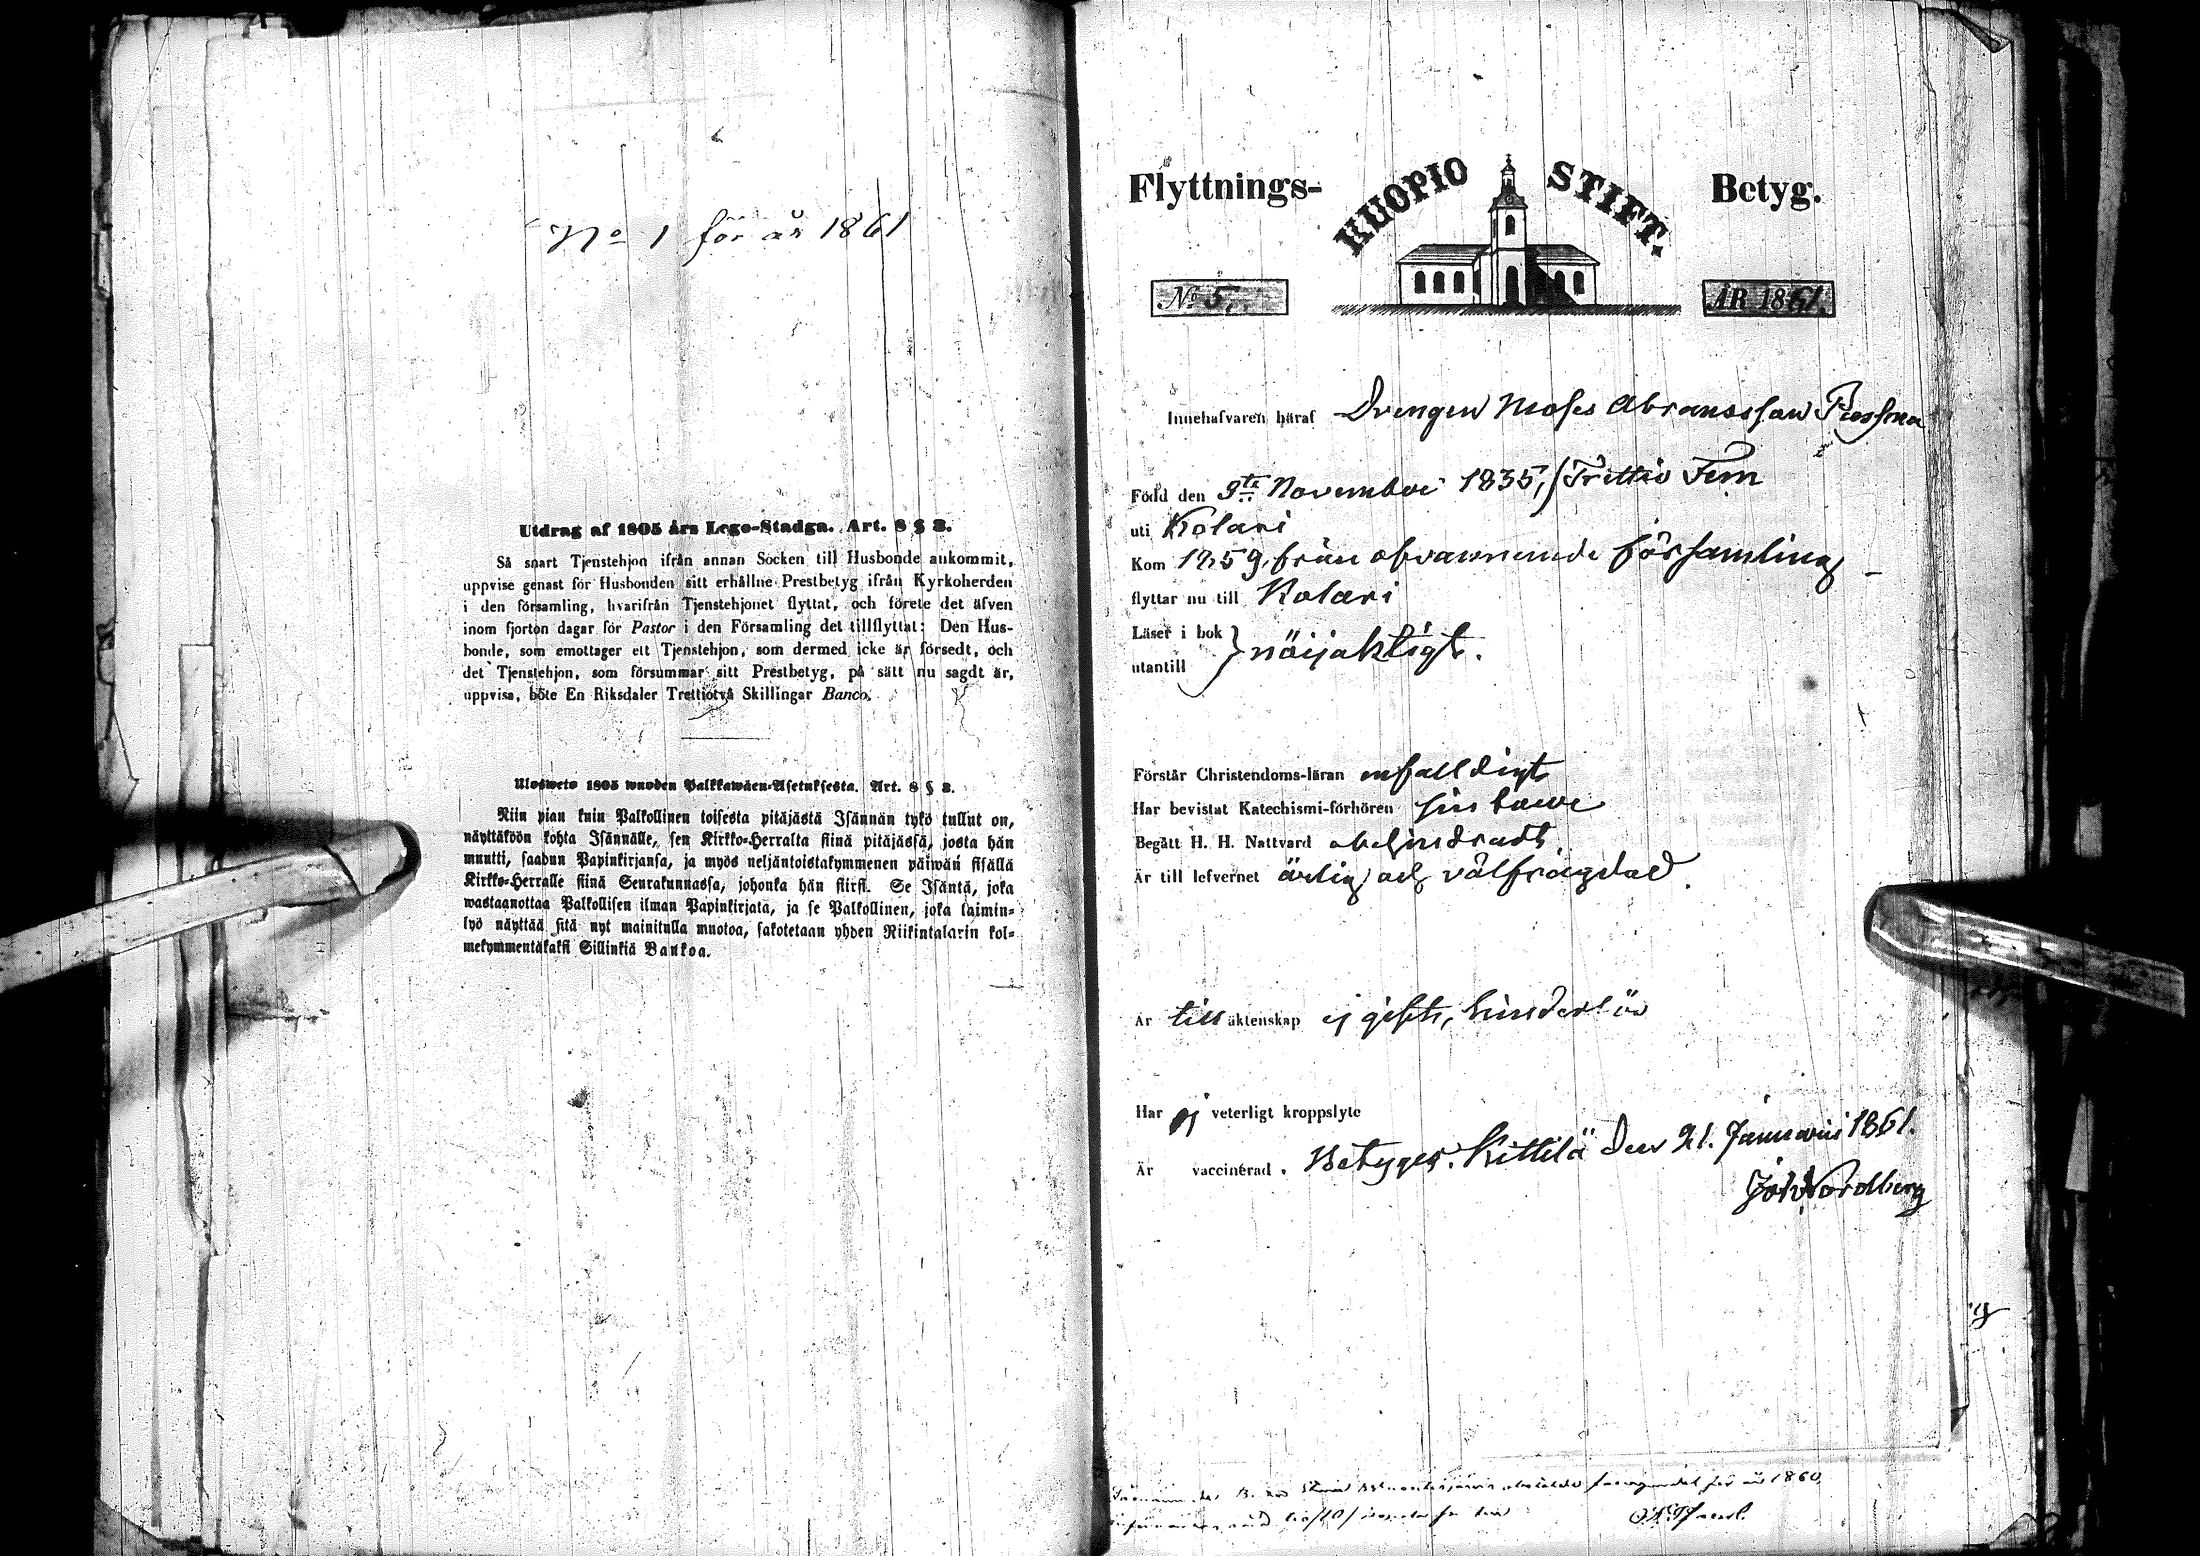 No 1 för år 1861
Utdrag af 1805 års Lego-Stadga. Art. 8 § 3.
Så snart Tjenstehjon ifrån annan Socken till Husbonde ankommit,
uppvise genast för Husbonden sitt erhållne Prestbetyg ifrån Kyrkoherden
i den församling, hvarifrån Tjenstehjonet flyttat, och förete det äfven
inom fjorton dagar för Pastor i den Församling det tillflyttat: Den Hus-
bonde, som emottager ett Tjenstehjon, som dermed icke är försedt, och
det Tjenstehjon, som försummar sitt Prestbetyg, på sätt nu sagdt är,
uppvisa, böte En Riksdaler Trettiotvå Skillingar Banco.
Ulosweto 1805 wuoden Palkkawäen-Asetuksesta. Art. 8 § 3.
Niin pian kuin Palkollinen toisesta pitäjästä Isännän tykö tullut on,
näyttäköön kohta Isännälle, sen Kirkko-Herralta siinä pitäjässä, josta hän
muutti, saadun Papinkirjansa, ja myös neljäntoistakymmenen päiwän sisällä
Kirkko-Herralle siinä Seurakunnassa, johonka hän siirsi. Se Isäntä, joka
wastaanottaa Palkollisen ilman Papinkirjata, ja se Palkollinen, joka laimin-
lyö näyttää sitä nyt mainitulla muotoa, sakotetaan yhden Riikintalarin kol-
mekymmentäkaksi Sillinkiä Bankoa.
Flyttnings- KUOPIO STIFT. Betyg.
No 5. ÅR 1861.
Innehafvaren häraf Drengen Moses Abramsson
Född den 9de November 1835, / Trettio Fem
uti Kolari
Kom 1859 från ofvannemnde församling
flyttar nu till Kolari
Läser i bok
utantill } nöijaktigt.
Förstår Christendoms-läran enfalldigt
Har bevistat Katechismi-förhören
Begått H. H. Nattvard obehindradt
Är till lefvernet ärlig och välfrägdad.
Är till äktenskap ej gift, hinderlös
Har ej veterligt kroppslyte
Är vaccinerad. Betygar. Kittilä den 21. Januarii 1861.
Joh Nordberg
för år 1860